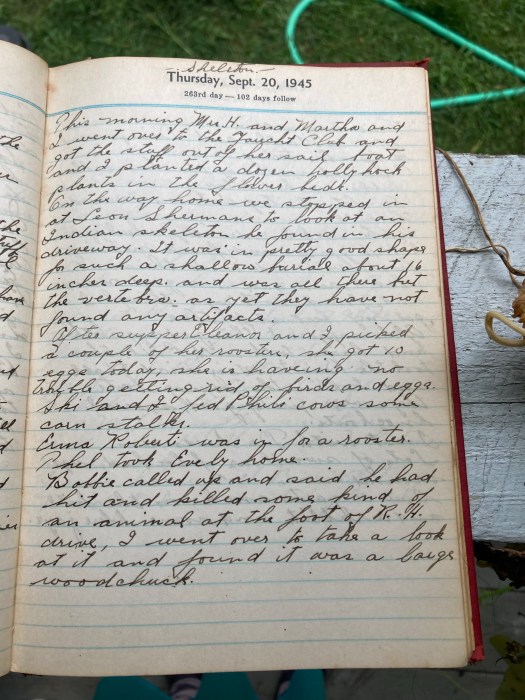 - Skeleton -
Thursday, Sept. 20, 1945
263rd day — 102 days follow
This morning Mrs H. and Martha and
I went over to the Yaught Club and
got the stuff out of her sail boat
and I planted a dozen hollyhock
plants in the flower beds.
On the way home we stopped in
at Leon Shermans to look at an
Indian skeleton he found in his
driveway. It was in pretty good shape
for such a shallow burial about 16
inches deep. and was all there but
the vertebra. as yet they have not
found any artifacts.
After supper Eleanor and I picked
a couple of her roosters, she got 10
eggs today, she is haveing no
trouble getting rid of birds and eggs.
Ski and I fed Phils cows some
corn stalks.
Erma Roberts was in for a rooster.
Phel took Evely home.
Bobbie called up and said he had
hit and killed some kind of
an animal at the foot of R.H.
drive, I went over to take a look
at it and found it was a large
woodchuck.